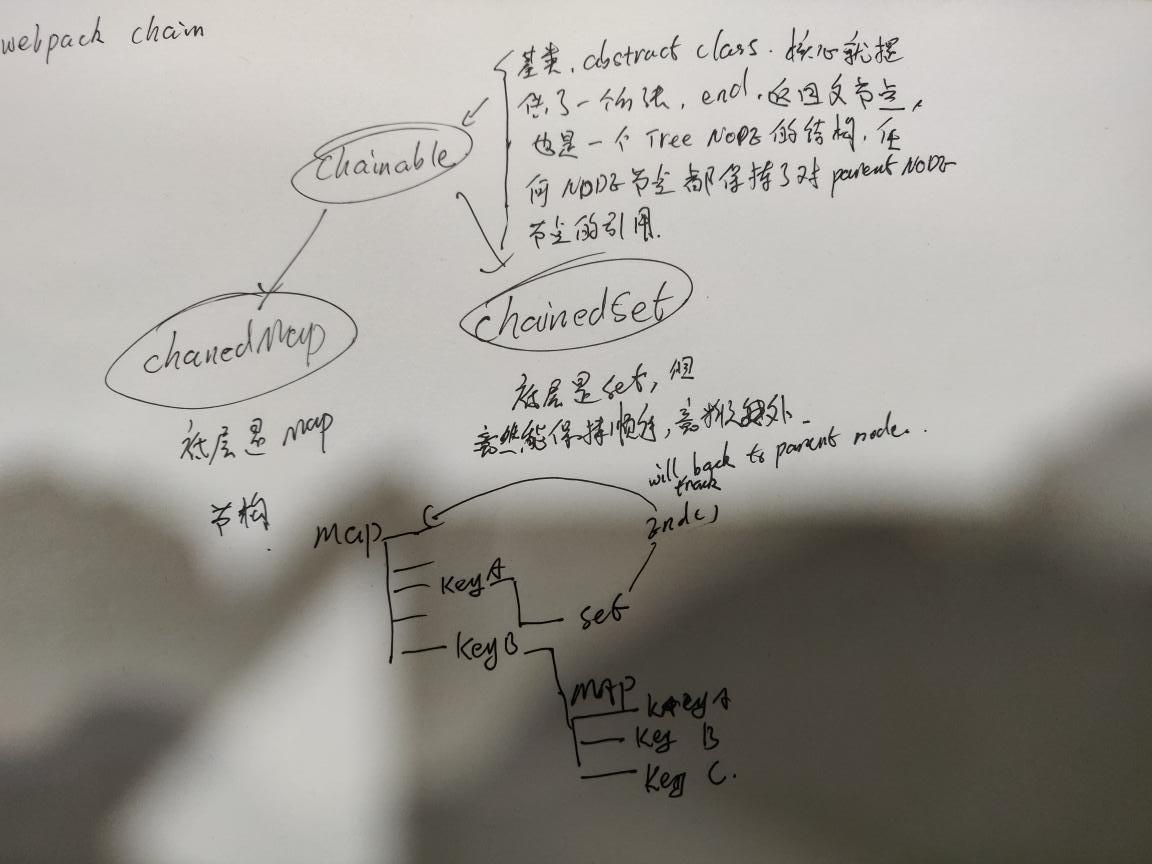 webpack chain
基类, abstract class. 核心就提
供了一个方法, end, 返回父节点,
也是一个 Tree NODE 的结构, 任
何 NODE 节点都保持了对 parent NODE
节点的引用.
Chainable
chanedMap
chainedSet
底层是 map
底层是 set, 但
竟然能保持顺序,
will back to parent node..
track
节构
End()
map
Key A
set
Key B
MAP
Key A
Key B
Key C.